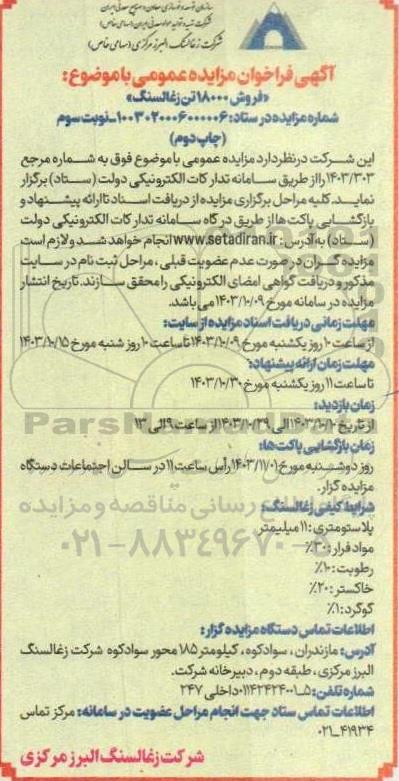 سازمان توسعه و نوسازی معادن و صنایع معدنی ایران
شرکت تهیه و تولید مواد معدنی ایران (سهامی خاص)
شرکت زغالسنگ البرز مرکزی (سهامی خاص)
آگهی فراخوان مزایده عمومی با موضوع:
«فروش ۱۸۰۰۰ تن زغالسنگ»
شماره مزایده در ستاد: ۱۰۰۳۰۲۰۰۰۶۰۰۰۰۰۶ـ نوبت سوم
(چاپ دوم)
این شرکت در نظر دارد مزایده عمومی با موضوع فوق به شماره مرجع
۱۴۰۳/۳۰۳ را از طریق سامانه تدارکات الکترونیکی دولت (ستاد) برگزار
نماید. کلیه مراحل برگزاری مزایده از دریافت اسناد تا ارائه پیشنهاد و
بازگشایی پاکت‌ها از طریق درگاه سامانه تدارکات الکترونیکی دولت
(ستاد) به آدرس: www.setadiran.ir انجام خواهد شد و لازم است
مزایده گران در صورت عدم عضویت قبلی، مراحل ثبت نام در سایت
مذکور و دریافت گواهی امضای الکترونیکی را محقق سازند. تاریخ انتشار
مزایده در سامانه مورخ ۱۴۰۳/۱۰/۰۹ می باشد.
مهلت زمانی دریافت اسناد مزایده از سایت:
از ساعت ۱۰ روز یکشنبه مورخ ۱۴۰۳/۱۰/۰۹ تا ساعت ۱۰ روز شنبه مورخ ۱۴۰۳/۱۰/۱۵
مهلت زمان ارائه پیشنهاد:
تا ساعت ۱۱ روز یکشنبه مورخ ۱۴۰۳/۱۰/۳۰
زمان بازدید:
از تاریخ ۱۴۰۳/۱۰/۱۰ الی ۱۴۰۳/۱۰/۲۹ از ساعت ۹ الی ۱۳
زمان بازگشایی پاکت‌ها:
روز دوشنبه مورخ ۱۴۰۳/۱۱/۰۱ رأس ساعت ۱۱ در سالن اجتماعات دستگاه
مزایده گزار.
شرایط کیفی زغالسنگ:
پلاستومتری: ۱۱ میلیمتر
مواد فرار: ۳۰٪
رطوبت: ۱۰٪
خاکستر: ۲۰٪
گوگرد: ۱٪
اطلاعات تماس دستگاه مزایده گزار:
آدرس: مازندران، سوادکوه، کیلومتر ۱۸۵ محور سوادکوه شرکت زغالسنگ
البرز مرکزی، طبقه دوم، دبیرخانه شرکت.
شماره تلفن: ۵ـ۰۱۱۴۲۴۲۴۰۰۱ داخلی ۲۴۷
اطلاعات تماس ستاد جهت انجام مراحل عضویت در سامانه: مرکز تماس
۰۲۱-۴۱۹۳۴
شرکت زغالسنگ البرز مرکزی
ParsNamadData
پایگاه اطلاع رسانی مناقصه و مزایده
۰۲۱-۸۸۳۴۹۶۷۰-۵